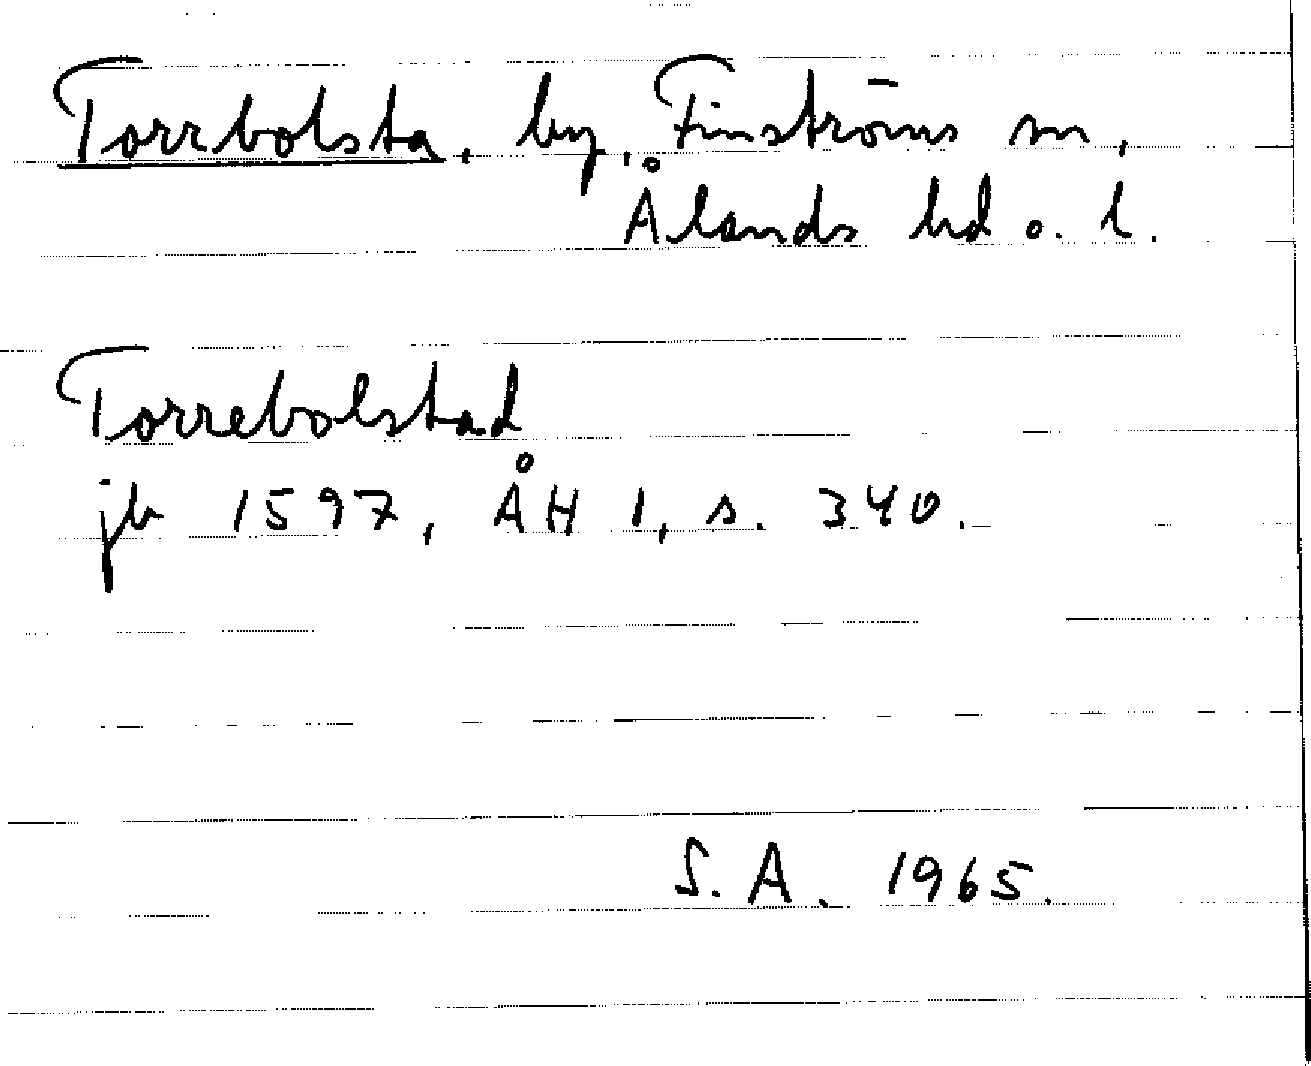 Torrbolsta, by, Finströms sn,
Ålands hd o. l.
Torrebolstad
jb 1597, ÅH 1, s. 340.
S. A. 1965.